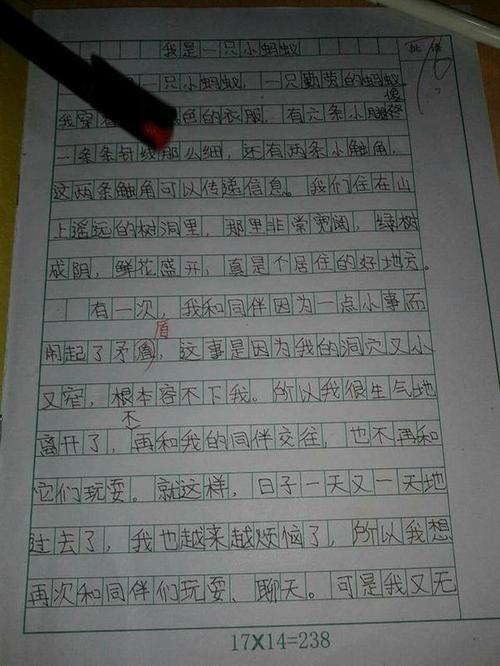 我是一只小蚂蚁
批
一只小蚂蚁，一只勤劳的蚂蚁。
我穿 色的衣服，有六条小腿像
一条条针线那么细，还有两条小触角，
这两条触角可以传递信息。我们住在山
上遥远的树洞里，那里非常宽阔，绿树
成阴，鲜花盛开，真是个居住的好地方。
有一次，我和同伴因为一点小事而
盾
闹起了矛 ，这事是因为我的洞穴又小
又窄，根本容不下我。所以我很生气地
不
离开了，再和我的同伴交往，也不再和
它们玩耍。就这样，日子一天又一天地
过去了，我也越来越烦恼了，所以我想
再次和同伴们玩耍、聊天。可是我又无
17×14=238